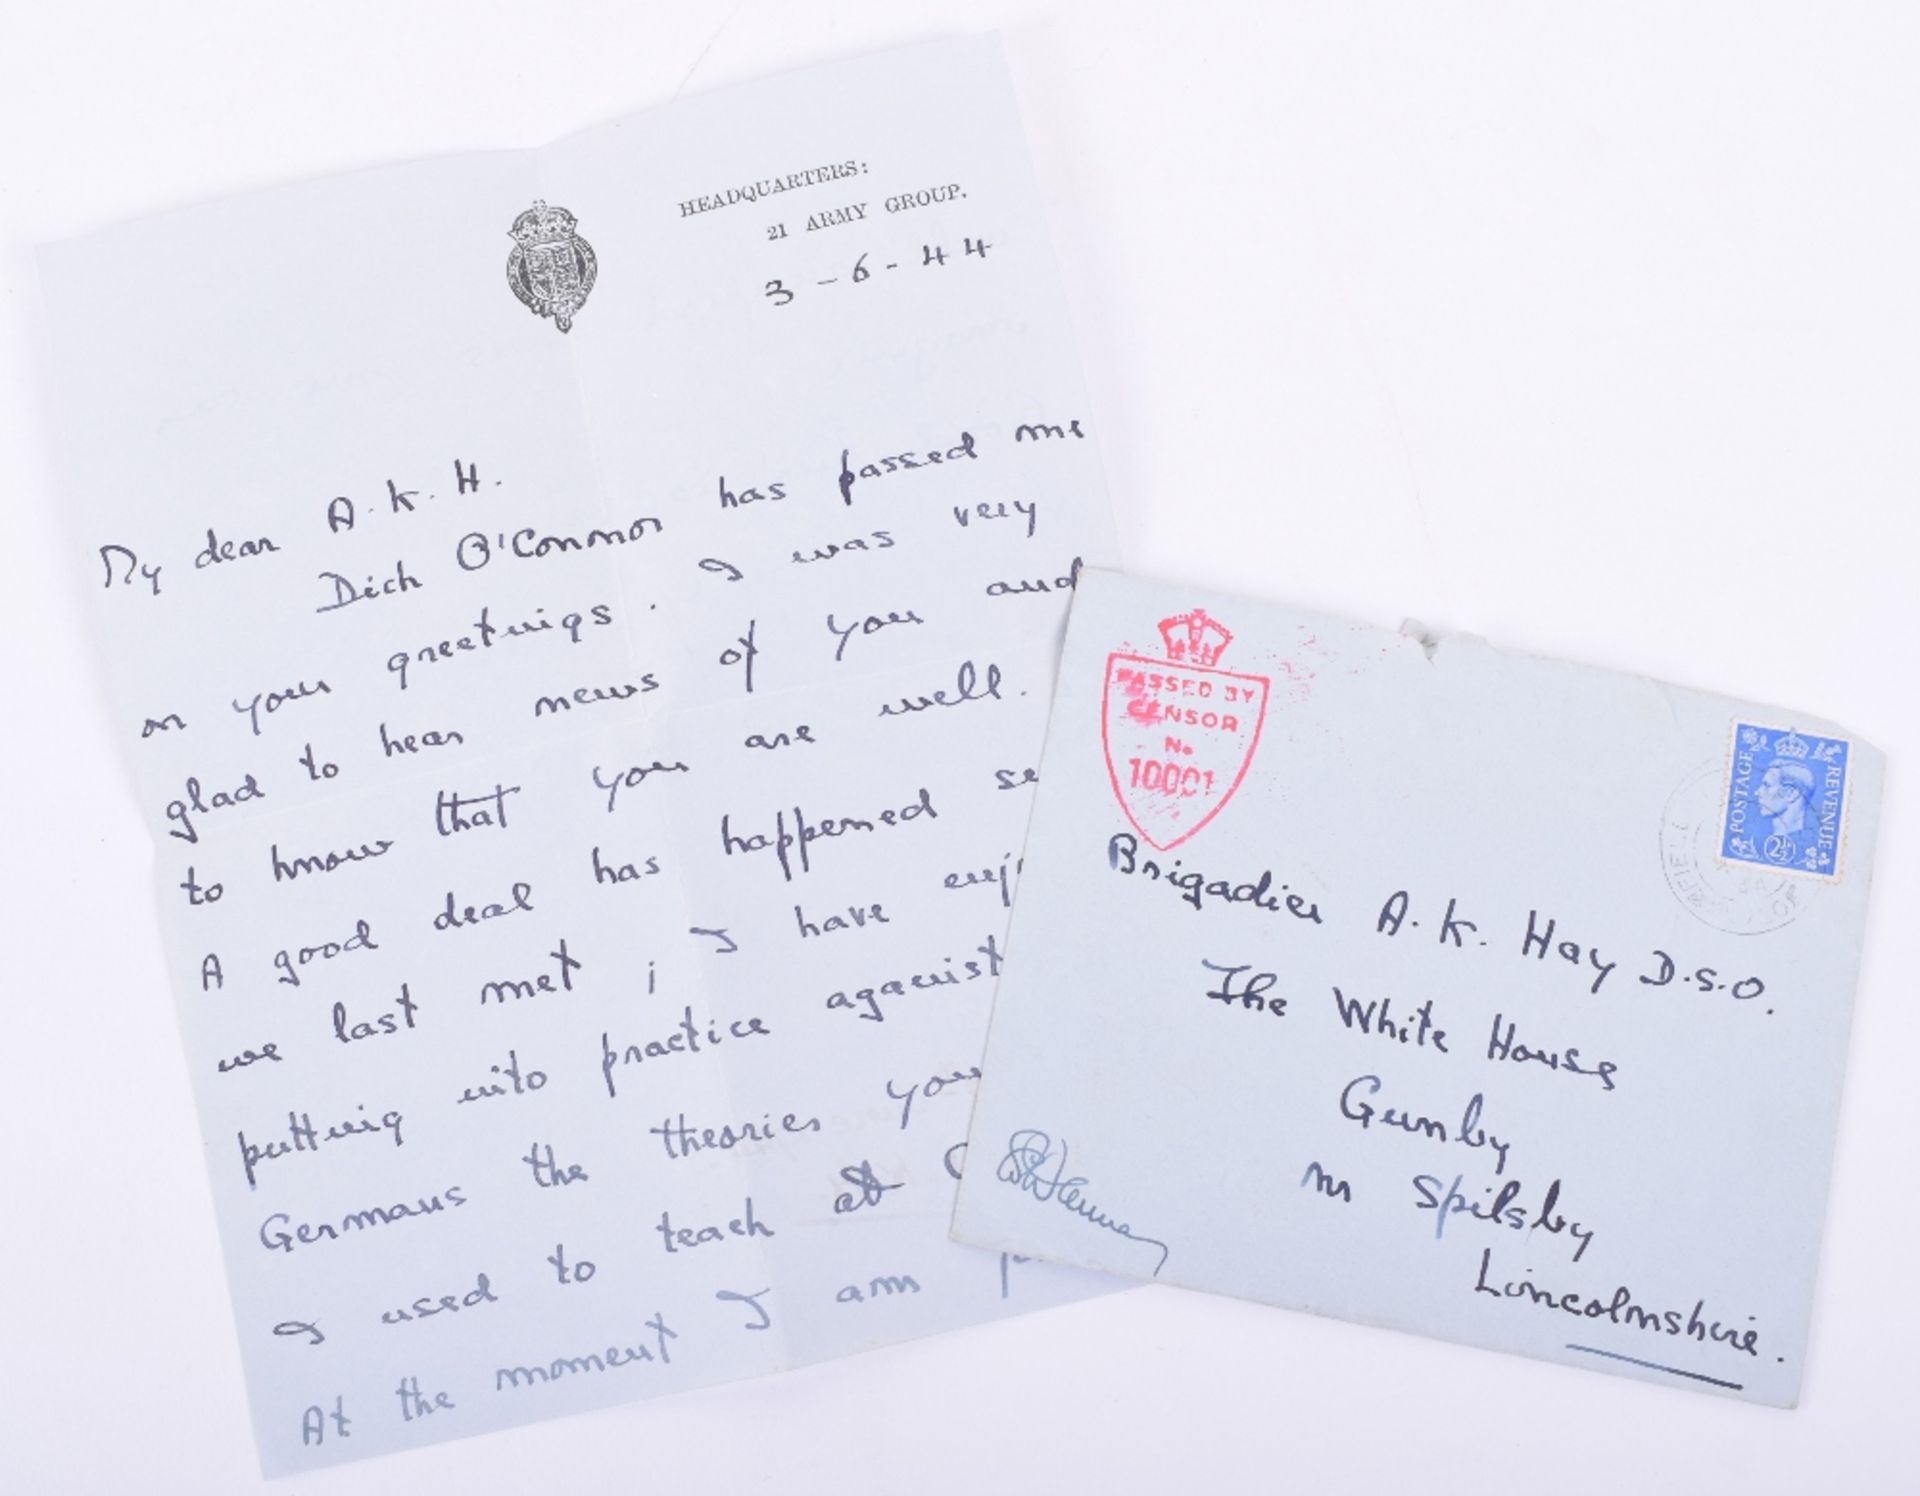 HEADQUARTERS:
21 ARMY GROUP.
3-6-44
My dear A.K.H.
Dick O'Connor has passed me
on your greetings. I was very
glad to hear news of you and
to know that you are well.
A good deal has happened
we last met; I have
putting into practice against
Germans the theories you
I used to teach at
At the moment I am
PASSED BY
CENSOR
No.
10001
POSTAGE
REVENUE
2½
Brigadier A.K. Hay D.S.O.
The White House
Gunby
nr Spilsby
Lincolnshire.